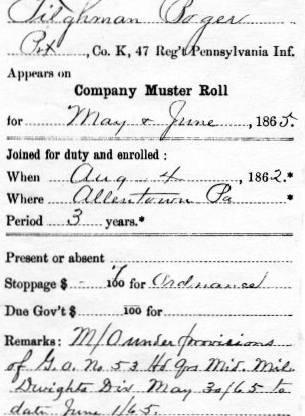 Tilghman Boger
Pvt, Co. K, 47 Reg't Pennsylvania Inf.
Appears on
Company Muster Roll
for May & June, 1865.
Joined for duty and enrolled:
When Aug 4, 1862.*
Where Allentown Pa *
Period 3 years.*
Present or absent
Stoppage $ 100 for Ordnance
Due Gov't $ 100 for
Remarks: M/O under provisions
of G.O. No 53 Hd Qrs Mid. Mil.
Dwights Div. May 30/65 to
date June 1/65.